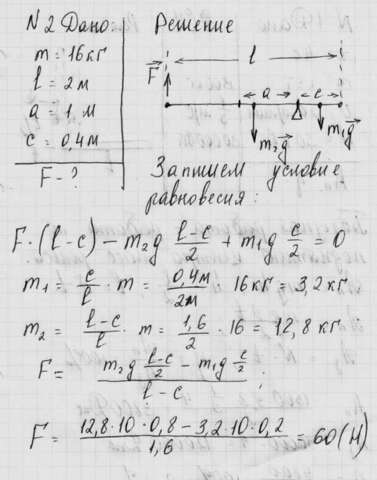 N2 Дано
m = 16 кг
l = 2 м
a = 1 м
c = 0,4 м
F - ?
Решение
l
F
a
c
m₂g
m₁g
Запишем условие
равновесия:
F·(l-c) - m₂g (l-c)/2 + m₁g c/2 = 0
m₁ = c/l · m = 0,4м/2м · 16кг = 3,2кг
m₂ = (l-c)/l · m = 1,6/2 · 16 = 12,8 кг
F = (m₂g (l-c)/2 - m₁g c/2)/(l-c) ;
F = (12,8·10·0,8 - 3,2·10·0,2)/1,6 = 60 (Н)